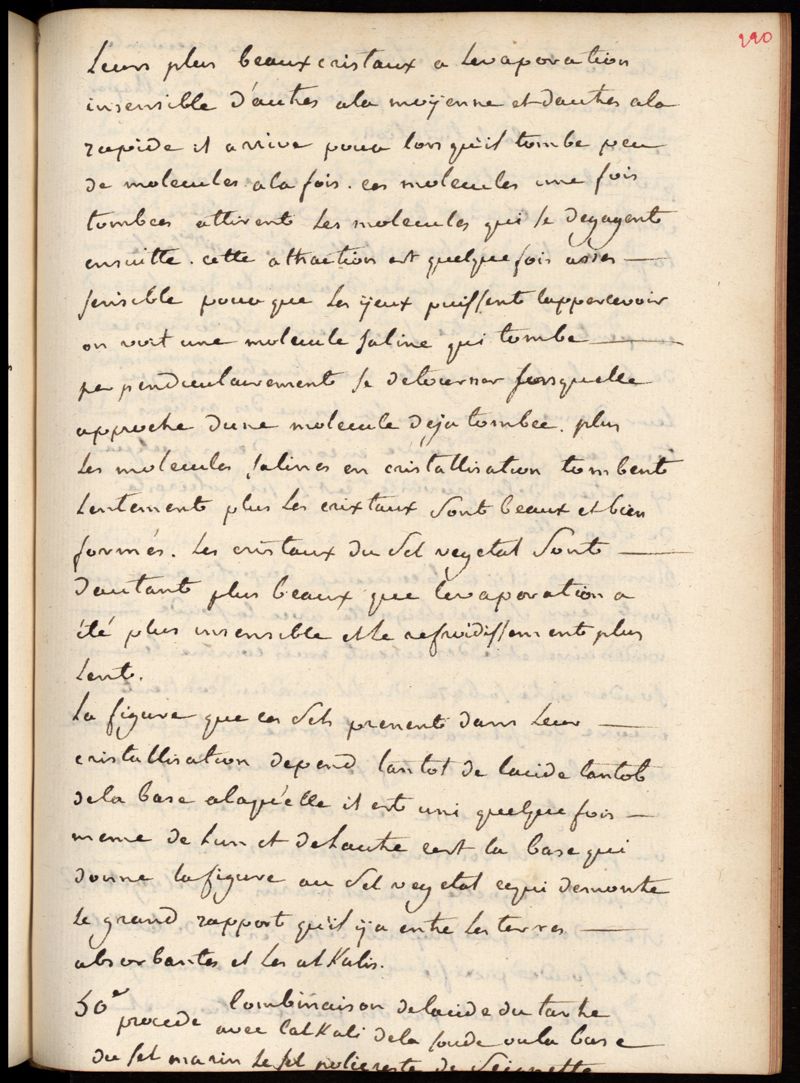 290
Leurs plus beaux cristaux a levaporation
insensible d'autres ala moÿenne et dautres ala
rapide il arrive pour lorsquil tombe peu
de molecules ala fois. ces molecules une fois
tombees attirent les molecules qui se degagent
ensuitte. cette attraction est quelque fois asses —
sensible pour que les ÿeux puissent lappercevoir
on voit une molecule saline qui tombe —
perpendiculairement se detourner lorsquelle
approche dune molecule deja tombee. plus
les molecules salines en cristallisation tombent
lentement plus les crixtaux sont beaux et bien
formés. les cristaux du sel vegetal sont —
dautant plus beaux que levaporation a
été plus insensible et le refroidissement plus
lent.
la figure que ces sels prenent dans leur —
cristallisation depend tantot de lacide tantot
dela base alaquelle il est uni quelque fois —
meme de lun et de lautre cest la base qui
donne la figure au sel vegetal cequi demontre
le grand rapport quil ÿ a entre les terres —
absorbantes et les alkalis.
50e procede Combinaison delacide du tartre
avec lalkali dela soude ou la base
du sel marin le sel policreste de Seignette